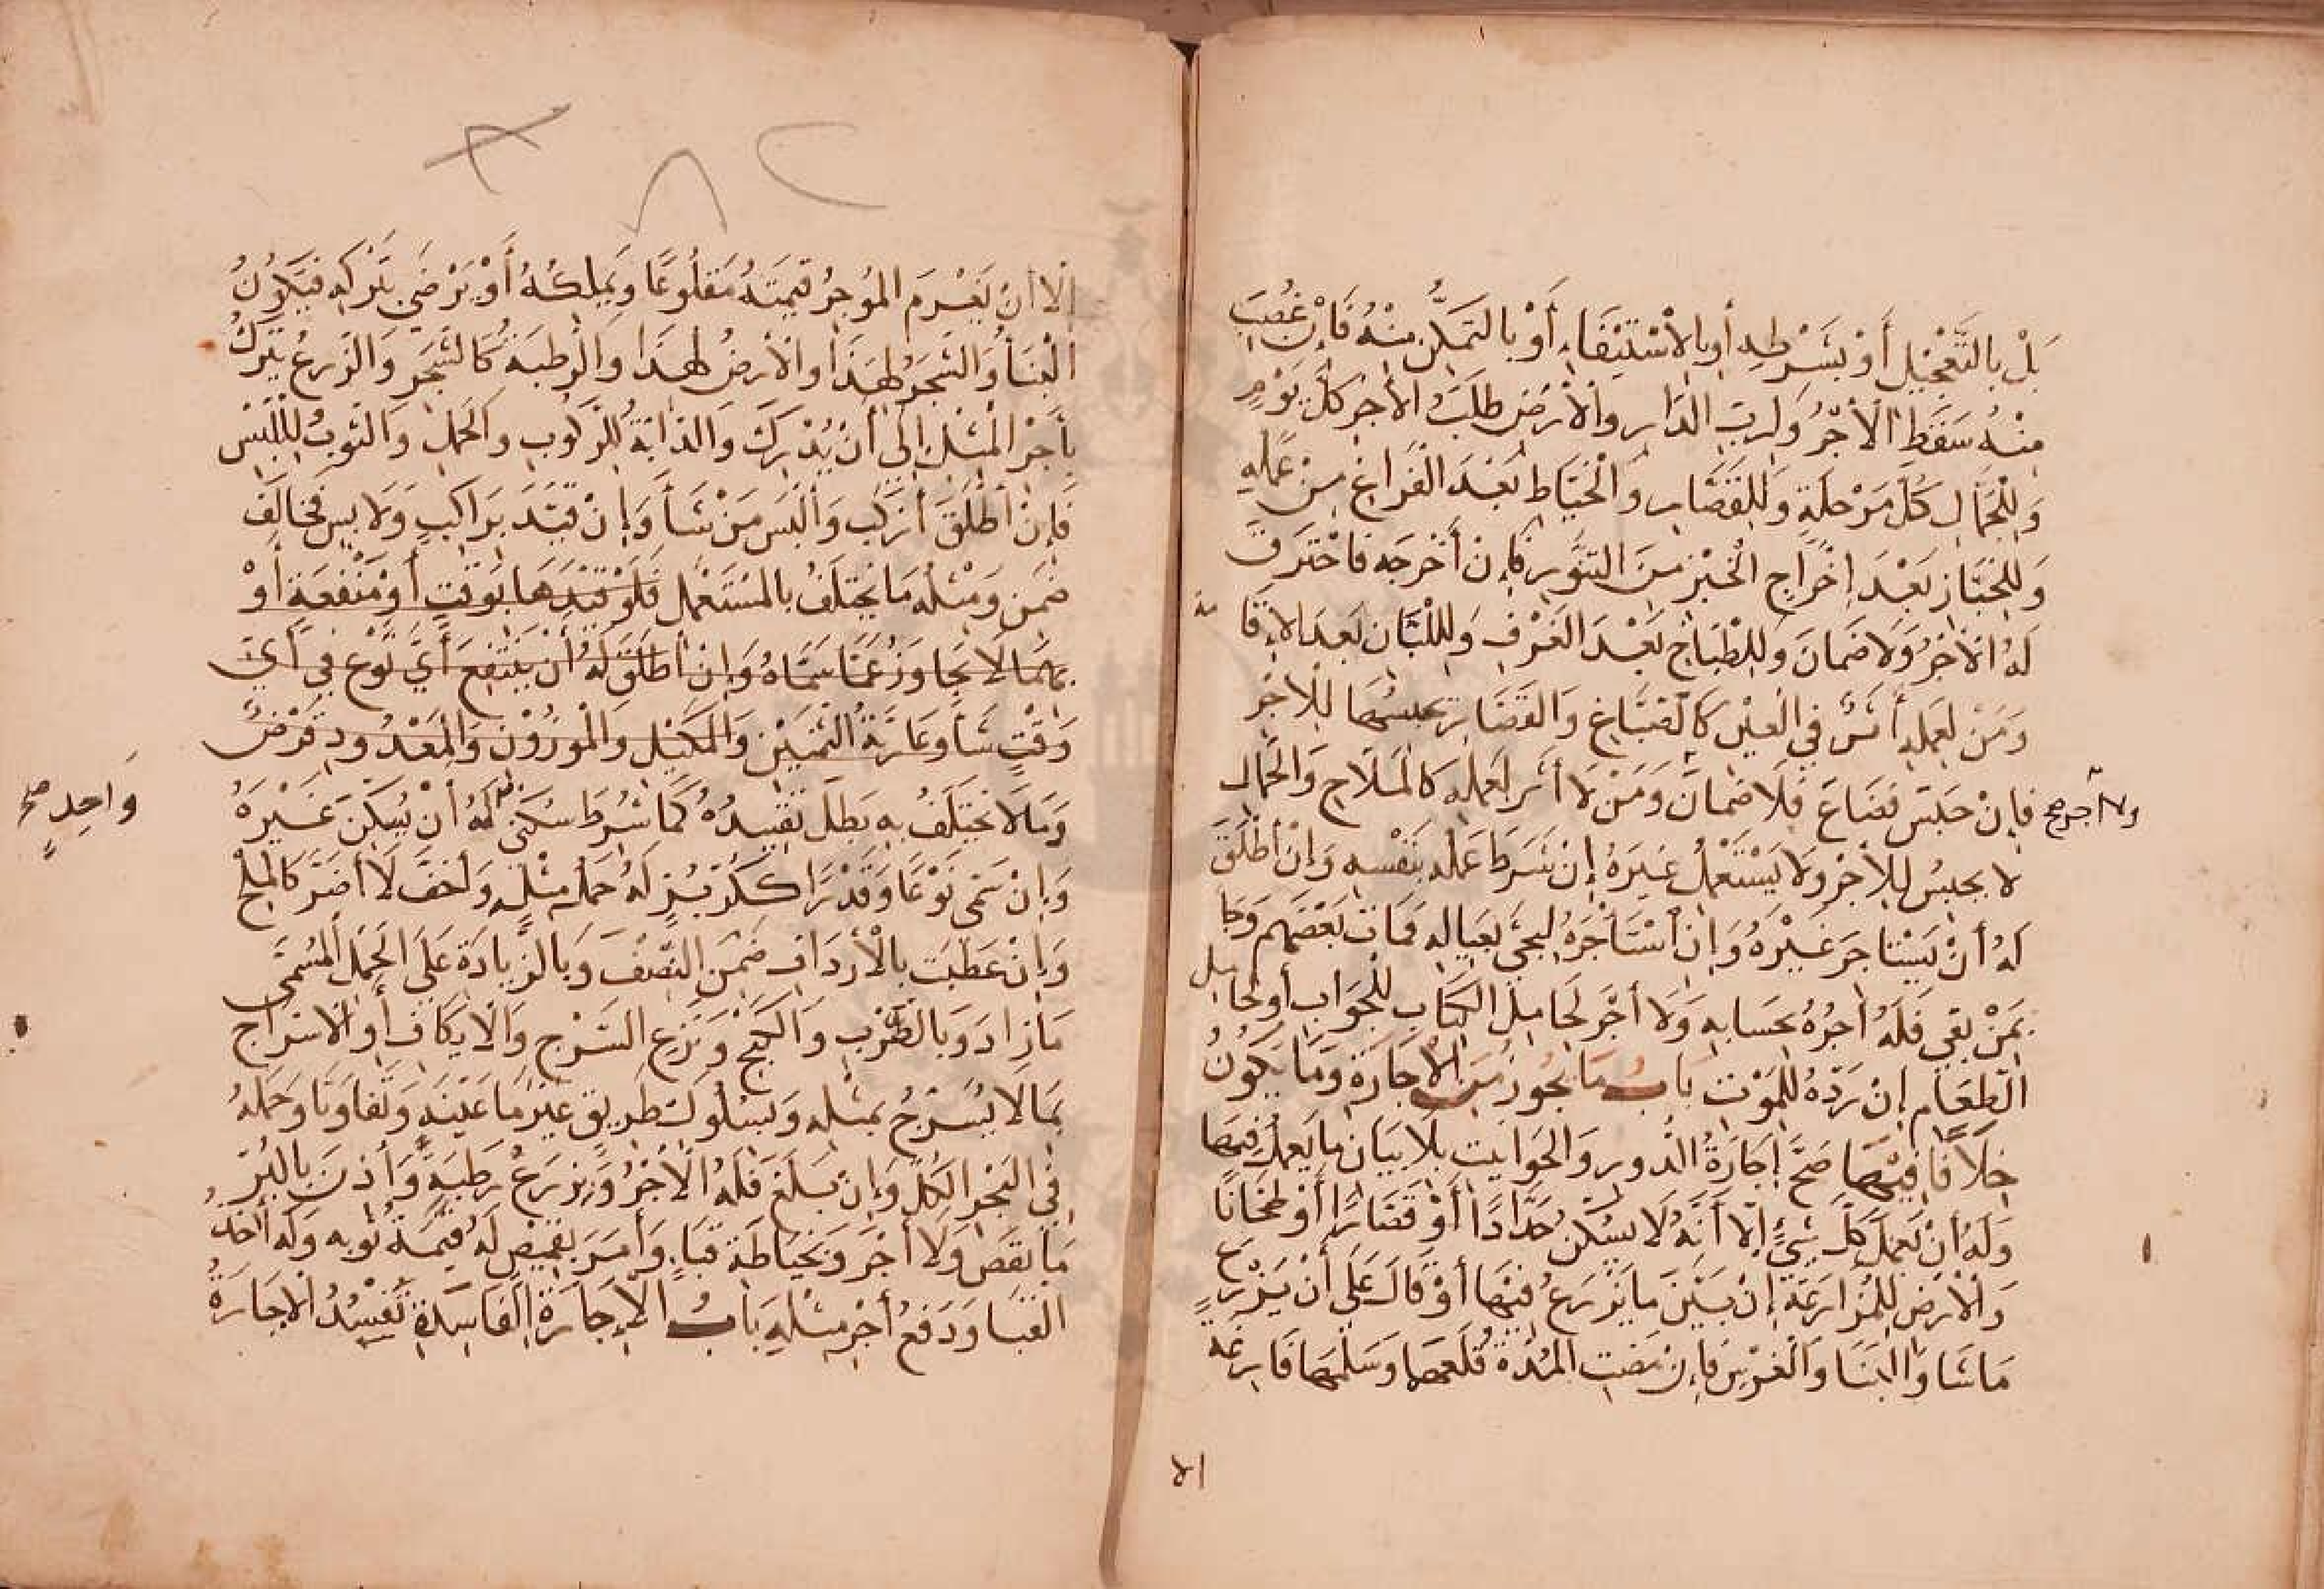 بَلْ بِالتَّعْجِيلِ أَوْ بِشَرْطِهِ أَوبِالاْسْتِيْفَاءِ أَوْ بِالتَمَكُّنِ مِنْهُ فَإِنْ غُصِبَ
مِنْهُ سَقَطَ الْأَجْرُ وَلِرَبِّ الدَارِ وَالْأَرْضِ طَلَبُ الأَجْرِ كُلَّ يَوْمٍ
وَلِلْجَمَّالِ كُلَّ مَرْحَلَةٍ وَلِلقَصَّارِ وَالْخَيَّاطِ بَعْدَ الفَرَاغِ مِنْ عَمَلِهِ
وَلِلْخَبَّازِ بَعْدَ إِخْرَاجِ الخُبْزِ مِنَ التَنُّورِ فَإِنْ أَخْرَجَه فَاحْتَرَقَ
لَهُ الأَجْرُ وَلَا ضَمَانَ وَلِلطَبَّاخِ بَعْدَ الغَرْفِ وَلِلَّبَّانِ بَعدَ الاِقَا
مة
وَمَنْ لِعَمَلِهِ أَثَرٌ فِي العَيْنِ كَالصَّبَّاغِ وَالقَصَّارِ يَحبسُهَا لِلْأَجْرِ
فَإِنْ حَبَسَ فَضَاعَ فَلَا ضَمَانَ وَمَنْ لَا أَثَرَ لِعَمَلِهِ كَالمَلَّاحِ وَالحَمَّالِ
ولا أجر صح
لا يحبسُ لِلأَجْرِ وَلَا يَسْتَعْمِلُ غَيْرَهُ إِنْ شَرَطَ عَمَلَه بِنَفْسِهِ وَإِنْ أَطْلَقَ
لَهُ أَنْ يَسْتَاجِرَ غَيْرَهُ وَإِنْ اسْتَأْجَرَهُ لِيَجِئَ بِعِيَالِهِ فَمَاتَ بَعْضُهُمْ وَجَا
بِمَنْ بَقِيَ فَلَهُ أَجْرُهُ بِحَسَابِهِ وَلَا أَجْرَ لِحَامِلِ الكِتَابِ لِلْجَوَابِ أَو لِحَامِلِ
الطَعَامِ إِنْ رَدَّهُ لِلْمَوْتِ بَابُ مَا يَجُوزُ مِنَ الاِجَارَةِ وَمَا يَكُونُ
خِلَافًا فِيْهَا صَحَّ إِجَارَةُ الدُّورِ وَالحَوَانِيتِ بِلَا بَيَانِ مَا يَعْمَلُ فِيْهَا
وَلَهُ أَنْ يَعْمَلَ كُلَّ شَيْءٍ إِلَّا أَنَّهُ لَا يسْكِنُ حَدَّادًا أَوْ قَصَّارًا أَوْ طَحَّانًا
وَالْأَرْضِ لِلْمُزَارَعَةِ إِنْ بَيَّنَ مَا يَزْرَعُ فِيْهَا أَوْ قَالَ عَلَى أَنْ يَزْرَعَ
مَا شَا وَالبِنَا وَالْغَرْسِ فَإِنْ مَضَتِ المُدَّةُ قَلَعَهَا وَسَلَّمَهَا فَارِغَة
الا
إِلَّا أَنْ يَغْرَمَ المُوجِرُ قِيمَتَهُ مَقْلُوعًا وَيَملِكَهُ أَوْ يَرْضَى بِتَرْكِهِ فَيَكُونُ
الْبِنَأُ وَالشَّجَرُ لِهَذَا وَالأَرْضُ لِهَذَا وَالرَّطْبَةُ كَالشَجَرِ وَالزَرعُ يُتْرَكُ
بِأَجْرِ الْمِثْلِ إِلَى أَنْ يُدْرِكَ وَالدَابَّةُ لِلرُكُوبِ وَالحَمْلِ وَالثَوبُ لِلُّبْسِ
فَإِنْ أَطْلَقَ أَرْكَبَ وَأَلْبَسَ مَنْ شَأَ وَإِنْ قَيَّدَ بِرَاكِبٍ وَلَابِسٍ فَخَالَفَ
ضَمِنَ وَمِثْلُهُ مَا يَخْتَلِفُ بِالمُسْتَعْمِلِ فَلَوْ قَيَّدَهَا بِوَقْتٍ أَوْ مَنْفَعَةٍ أَوْ
بِهِمَا لَا يَتَجَاوَزُ عَمَّا سَمَّاهُ وَإِنْ أَطْلَقَ لَهُ أَنْ يَنْتَفِعَ أَيَّ نَوْعٍ فِي أَيِّ
وَقْتٍ شَأ وعَارِيَةُ الثَّمَنَيْنِ وَالمَكِيْلِ وَالمَوْزُوْنِ وَالمَعْدُودِ قَرْضٌ
وَمَا لَا يَخْتَلِفُ بِهِ بَطَلَ تَقْيِيدُهُ كَمَا شُرِطَ سُكْنَى لَهُ أَنْ يُسَكِّنَ غَيْرَهُ
وَاحِدٍ صح
وَإِنْ سَمَّى نَوْعًا وَقَدْرًا كَكُرِّ بُرٍّ لَهُ حَمْلُ مِثْلِهِ وَأَخَفَّ لَا أَضَرَّ كَالمِلْحِ
وَإِنْ عَطِبَتْ بِالْأَرْدَافِ ضَمِنَ النِّصْفَ وَبِالزِّيَادَةِ عَلَى الحَمْلِ المُسَمَّى
مَا زَادَ وَبِالضَّرْبِ وَالكَبْحِ وَنَزْعِ السَّرْجِ وَالْايكَافِ أَوِ الاسْرَاجِ
بِمَا لَا يُسْرَجُ بِمِثْلِهِ وَسُلُوكِ طَرِيقٍ غَيْرِ مَا عَيَّنَه وَتَفَاوَتَا وَحَمْلِهِ
فِي البَحْرِ الكُلَّ وَإِنْ بَلَغَ فَلَهُ الْأَجْرُ وَبِزَرْعِ رَطْبَةٍ وَأَذِنَ بِالبُرِّ
مَا نَقَصَ وَلَا أَجْرَ وَبِخِيَاطَةِ قَبَاءٍ وَأَمَرَ بِقَمِيصٍ لَهُ قِيْمَةُ ثَوبِهِ وَلَهُ أَخْذُ
الْقَبَا وَدَفْعُ أَجْرِ مِثْلِهِ بَابُ الْإِجَارَةِ الْفَاسِدَةِ تُفْسِدُ الْاجَارَةُ